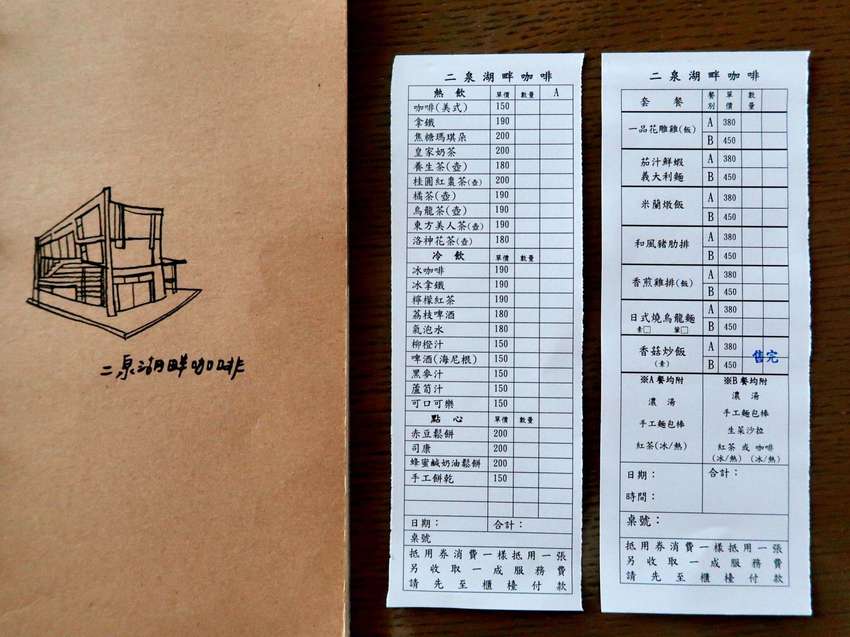 二泉湖畔咖啡
二泉湖畔咖啡
熱飲 單價 數量 A
咖啡(美式) 150
拿鐵 190
焦糖瑪琪朵 200
皇家奶茶 200
養生茶(壺) 180
桂圓紅棗茶(壺) 200
橘茶(壺) 190
烏龍茶(壺) 190
東方美人茶(壺) 190
洛神花茶(壺) 180
冷飲 單價 數量
冰咖啡 190
冰拿鐵 190
檸檬紅茶 190
荔枝啤酒 180
氣泡水 180
柳橙汁 150
啤酒(海尼根) 150
黑麥汁 150
蘆筍汁 150
可口可樂 150
點心 單價 數量
赤豆鬆餅 200
司康 200
蜂蜜鹹奶油鬆餅 200
手工餅乾 150
日期： 合計：
桌號
抵用券消費一樣抵用一張
另收取一成服務費
請先至櫃檯付款
二泉湖畔咖啡
套餐 餐別 單價 數量
一品花雕雞(飯) A 380
B 450
茄汁鮮蝦 A 380
義大利麵 B 450
米蘭燉飯 A 380
B 450
和風豬肋排 A 380
B 450
香煎雞排(飯) A 380
B 450
日式燒烏龍麵 A 380
素□ 葷□ B 450
香菇炒飯 A 380
(素) B 450 售完
※A餐均附 ※B餐均附
濃湯 濃湯
手工麵包棒 手工麵包棒
生菜沙拉
紅茶(冰/熱) 紅茶 或 咖啡
(冰/熱) (冰/熱)
日期： 合計：
時間：
桌號：
抵用券消費一樣抵用一張
另收取一成服務費
請先至櫃檯付款